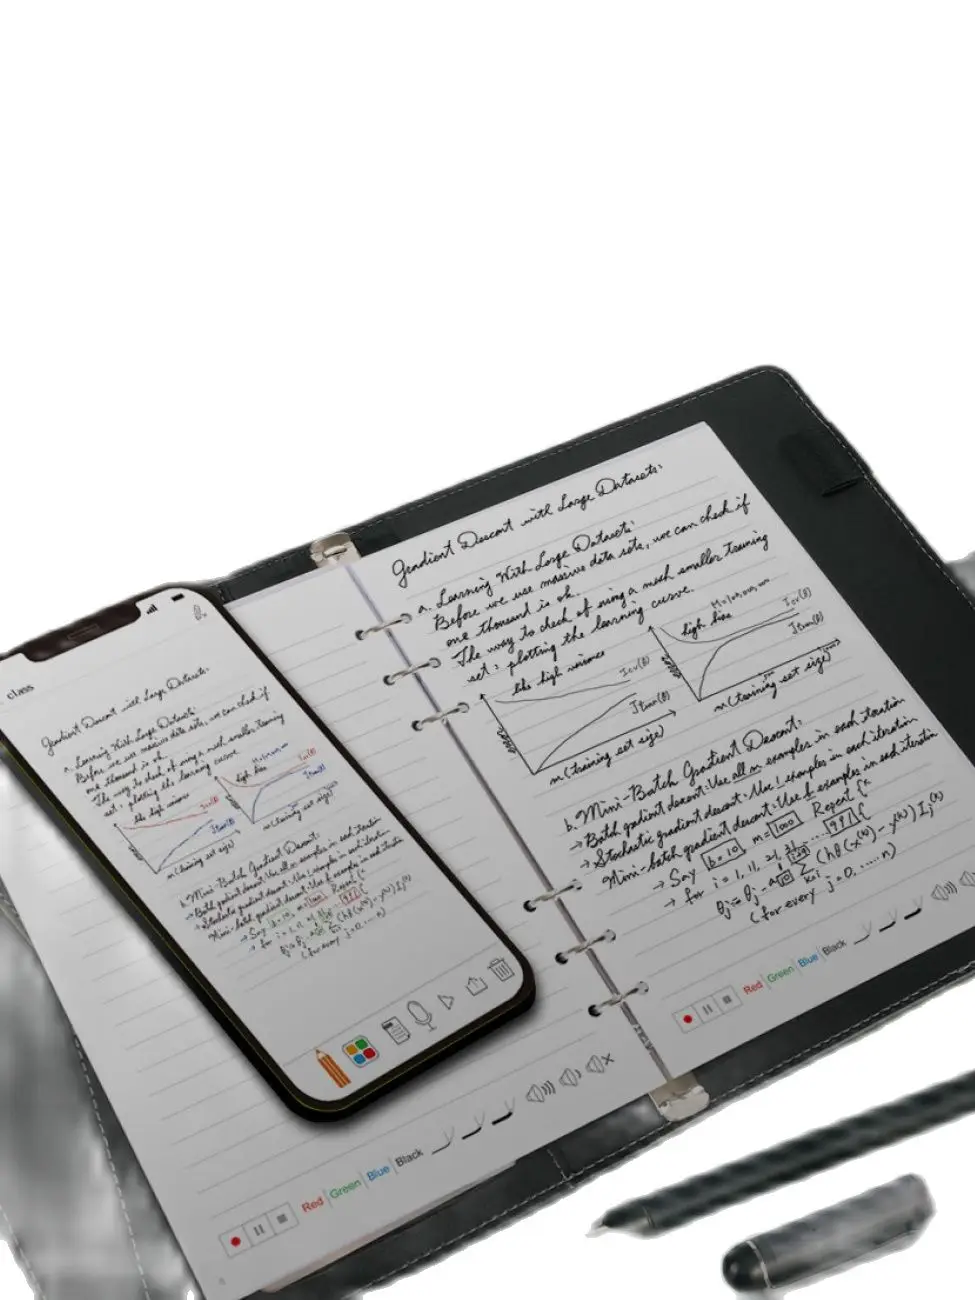 class
Gradient Descent with Large Datasets:
a. Learning With Large Datasets:
Before we use massive data sets, we can check if
one thousand is ok.
The way to check of using a much smaller training
set: plotting the learning curve.
like high variance
Jcv(θ)
Jtrain(θ)
m (training set size)
high bias
Jcv(θ)
Jtrain(θ)
m (training set size)
b. Mini-Batch Gradient Descent:
→ Batch gradient descent: Use all m examples in each iteration
→ Stochastic gradient descent: Use 1 examples in each iteration
Mini-batch gradient descent: Use b examples in each iteration
→ Say b=10, m=1000 Repeat {
→ for i = 1, 11, 21, 31 ... 991 {
(for every j=0.....n)
Red Green Blue Black
Gradient Descent with Large Datasets:
a. Learning With Large Datasets:
Before we use massive data sets, we can check if
one thousand is ok.
The way to check of using a much smaller training
set: plotting the learning curve.
like high variance
Jcv(θ)
Jtrain(θ)
m (training set size)
high bias
Jcv(θ)
Jtrain(θ)
m (training set size)
b. Mini-Batch Gradient Descent:
→ Batch gradient descent: Use all m examples in each iteration
→ Stochastic gradient descent: Use 1 examples in each iteration
Mini-batch gradient descent: Use b examples in each iteration
→ Say b=10, m=1000 Repeat {
→ for i = 1, 11, 21, 31 ... 991 {
(for every j=0.....n)
Red Green Blue Black